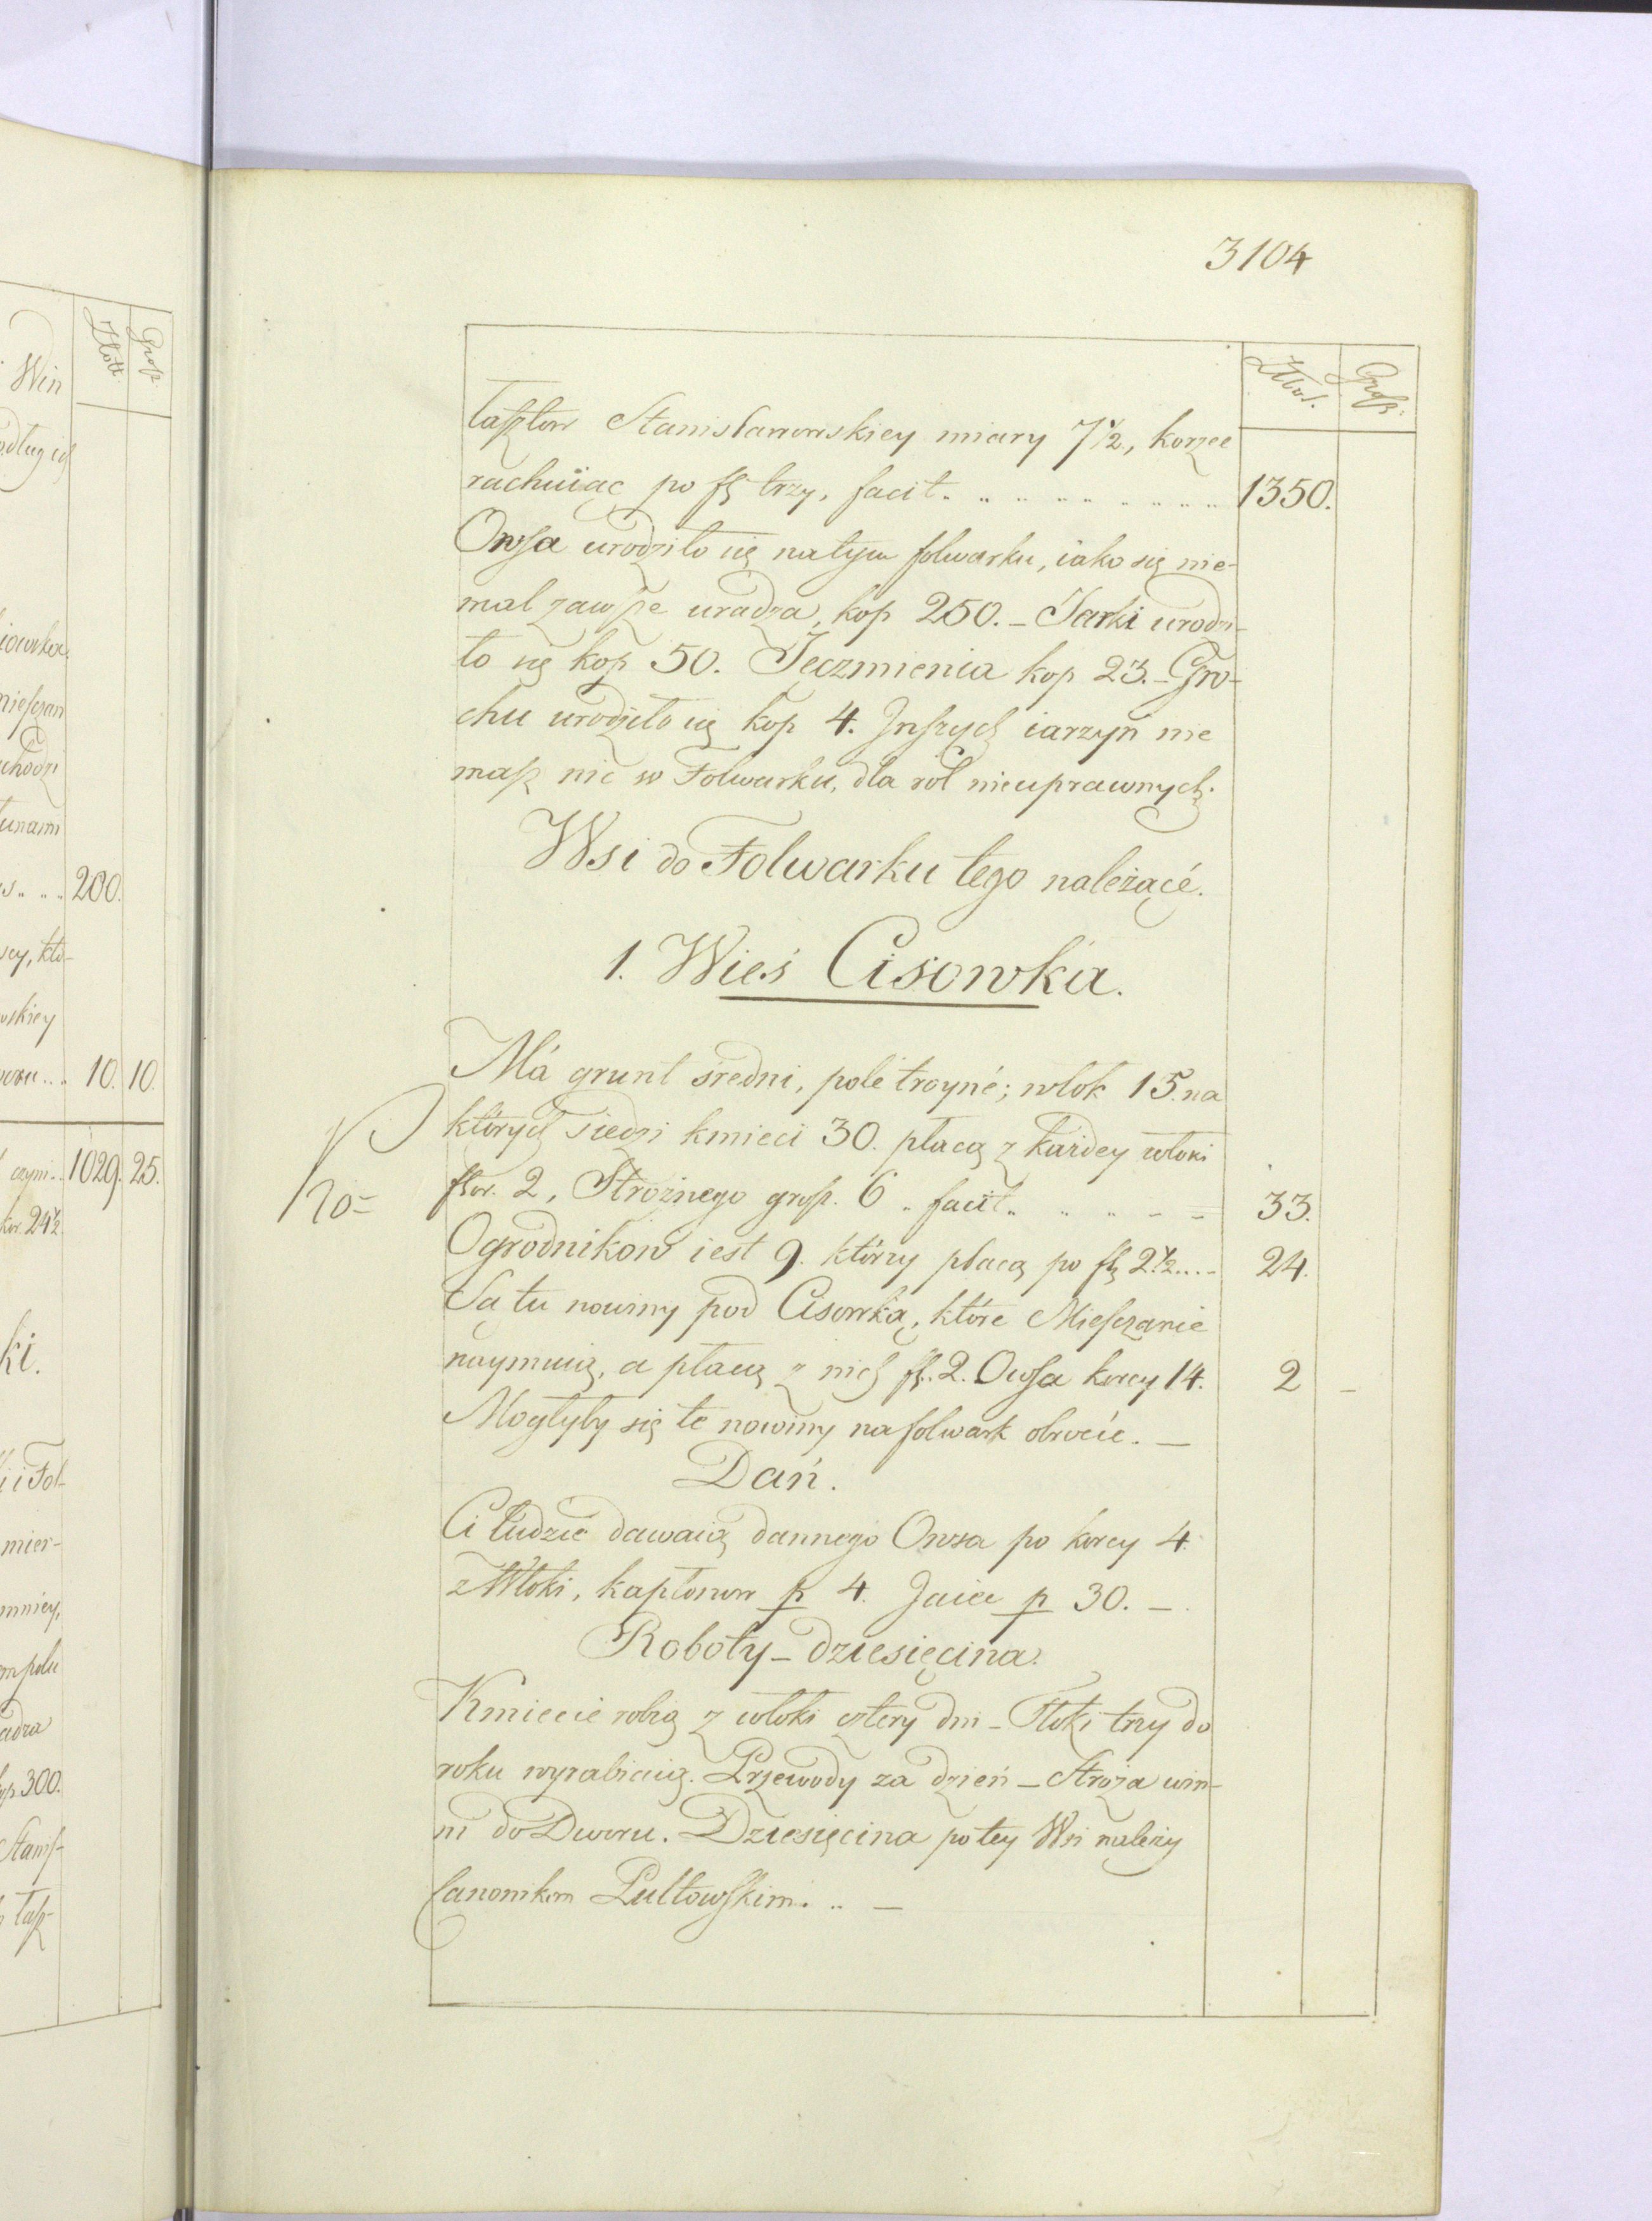 3104
Złot. Grosz.
łasztow Stanisławowskiey miary 7 1/2, korzec
rachuiąc po fl trzy, facit . . . . . . . . 1350.
Owsa urodziło się na tym folwarku, iako się nie-
mal zawsze uradza, kop 250. – Jarki urodzi-
ło się kop 50. Jęczmienia kop 23. – Gro-
chu urodziło się kop 4. Inszych iarzyn nie
masz nic w Folwarku, dla ról nieuprawnych.
Wsi do Folwarku tego należącé.
1. Wieś Cisowka.
Má grunt sredni, polé troyné; włok 15. na
których siedzi kmieci 30. płacą z każdey włoki
flor. 2, Strożnego grosz. 6 . facit . . . – – 33.
Ogrodnikow iest 9. którzy płacą po fl 2 1/2 . . . – 24.
Są tu nowiny pod Cisowką, które Miesczanie
naymuią, a płacą z nich fl. 2. Owsa korcy 14. 2 –
Mogłyby się te nowiny na folwark obrócić. –
Dań.
Ci ludzie dawaią dannego Owsa po korcy 4.
z Włoki, kapłonow p 4. Jaiec p 30. –
Roboty – dziesięcina.
Kmiecie robią z włoki cztery dni – Tłoki trzy do
roku wyrabiaią. Przewody za dzień – Stroża win-
ni do Dworu. Dziesięcina po tey Wsi należy
Canonikom Pultowskim. . . –
Złott. Grosz.
Win
200.
10. 10.
1029. 25.
24 1/2
ki.
i Fol-
mier-
mniey,
adza
300.
Stanis-
łasz-